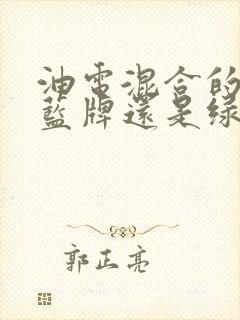 油電混合的
藍牌還是綠
郭正亮